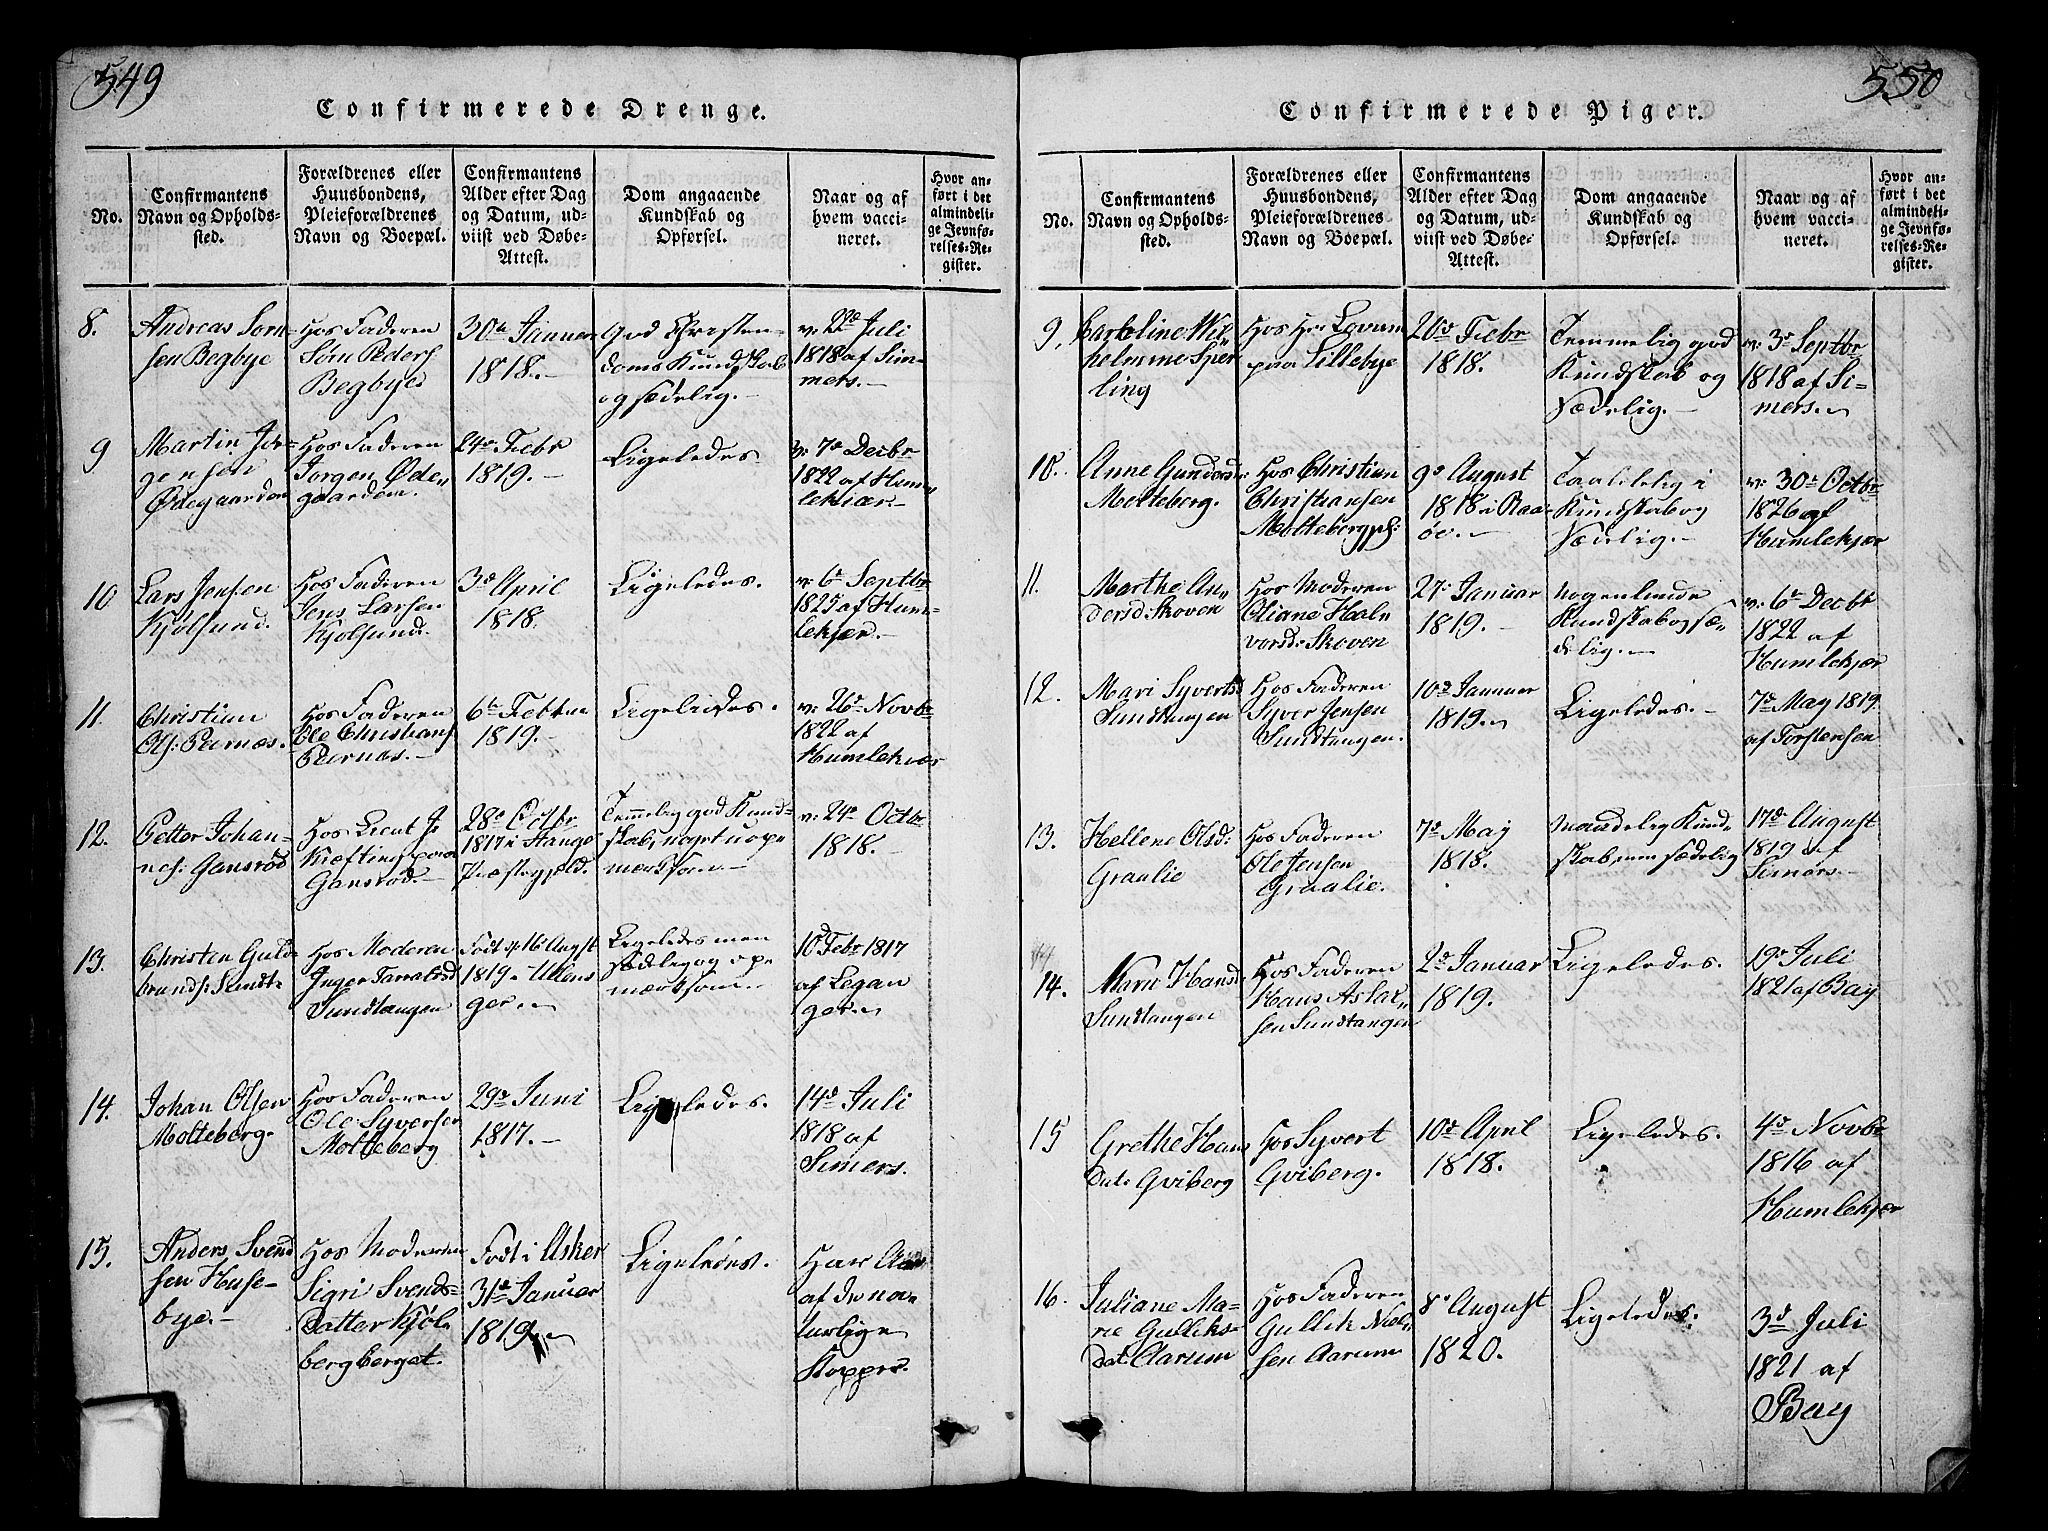 549
Confirmerede Drenge.
No.
Confirmantens
Navn og Opholds-
sted.
Forældrenes eller
Huusbondens,
Pleieforældrenes
Navn og Boepæl.
Confirmantens
Alder efter Dag
og Datum, ud-
viist ved Døbe-
Attest.
Dom angaaende
Kundskab og
Opførsel.
Naar og af
hvem vacci-
neret.
Hvor an-
ført i det
almindeli-
ge Jevnfø-
relses-Re-
gister.
8.
Andreas Sørn-
sen Begbye
Hos Faderen
Sørn Peders
Begbye
30te Januar
1818.-
God Christen-
doms Kundskab
og sædelig.-
v: 22de Juli
1818 af Sim-
mers.-
9
Martin Jør-
gensen
Ødegaarden
Hos Faderen
Jørgen Øde-
gaarden.
24de Febr
1819.-
Ligeledes
v: 7de Decbr
1822 af Hum-
lekiær.-
10
Lars Jensen
Kjølsund.
Hos Faderen
Jens Larsen
Kjølsund.
3de April
1818.
Ligeledes.
v: 6te Septbr
1825 af Hum-
lekjær.-
11.
Christian
Ols: Pernæs.-
Hos Faderen
Ole Christians
Pernæs.-
6te Febr
1819.-
Ligeledes.
v: 26de Novbr
1822 af
Humlekiær
12.
Petter Johan-
nes: Gansrød
Hos Lieut J.
Kræfting paa
Gansrød.-
28de Octbr
1817 i Stange
Præstegjeld.
Temmelig god Kund-
skab, noget uop-
mærksom.-
v: 24de Octbr
1818.-
13.
Christen Guld-
brands: Sundt-
Hos Moderen
Inger Tarralds
Sundtangen
Født d: 16 Augst
1819 i Ullens
ger.
Ligeledes men
sædelig og op-
mærksom.-
10d Febr 1817
af Legan
ger.
14.
Johan Olsen
Molteberg.
Hos Faderen
Ole Syversen
Molteberg
29de Juni
1817.-
Ligeledes.
14de Juli
1818 af
Simers.
15.
Anders Svend
sen Huse-
bye.-
Hos Moderen
Sigri Svends-
Datter Kjøl-
bergberget.
Født i Asker
31te Januar
1819.
Ligeledes.
Har
af de na-
turlige
Kopper.
550
Confirmerede Piger.
No.
Confirmantens
Navn og Opholds-
sted.
Forældrenes eller
Huusbondens,
Pleieforældrenes
Navn og Boepæl.
Confirmantens
Alder efter Dag
og Datum, ud-
viist ved Døbe-
Attest.
Dom angaaende
Kundskab og
Opførsel.
Naar og af
hvem vacci-
neret.
Hvor an-
ført i det
almindeli-
ge Jevnfø-
relses-Re-
gister.
9.
Wil-
helmine Sper
ling
Hos Hr: Lorum
paa Lillebye
20de Febr
1818.
Temmelig god
Kundskab og
Sædelig.-
v: 3de Septbr
1818 af Si-
mers.
10.
Anne Gundersd:
Molteberg.
Hos Christian
Christiansen
Molteberg pl:
9de August
1818 i Raa-
de.-
Taalelig i
Kundskab og
Sædelig.-
v: 30te Octbr
1826 af
Humlekjær
11.
Marthe An-
dersd Skoven
Hos Moderen
Oliane Hal-
vorsd: Skoven
27de Januar
1819.-
Nogenlunde
Kundskab og sæ-
delig.-
v: 6te Decbr
1822 af
Humlekjær
12.
Mari Syvertsd
Sundtangen
Hos Faderen
Syver Jensen
Sundtangen.
10de Januar
1819.
Ligeledes.-
7de May 1819
af Torstensen
13.
Hellene Olsd:
Graalie
Hos Faderen
Ole Jensen
Graalie.
7de May
1818.
Maadelig Kund-
skab men sædelig
17de August
1819 af
Simers.-
14.
Karn Hansd
Sundtangen
Hos Faderen
Hans Aslak-
sen Sundtangen
2de Januar
1819.
Ligeledes.
19de Juli
1821 af Bay
15
Grethe Hans
Dat: Gviberg
Hos Syvert
Gviberg.
10de April
1818.
Ligeledes.
4de Novbr
1816 af
Humlekjær
16.
Juliane Ma-
rie Gulliks-
dat: Aarum
Hos Faderen
Gullik Niel-
sen Aarum
8de August
1820.
Ligeledes.
3de Juli
1821 af
Bay